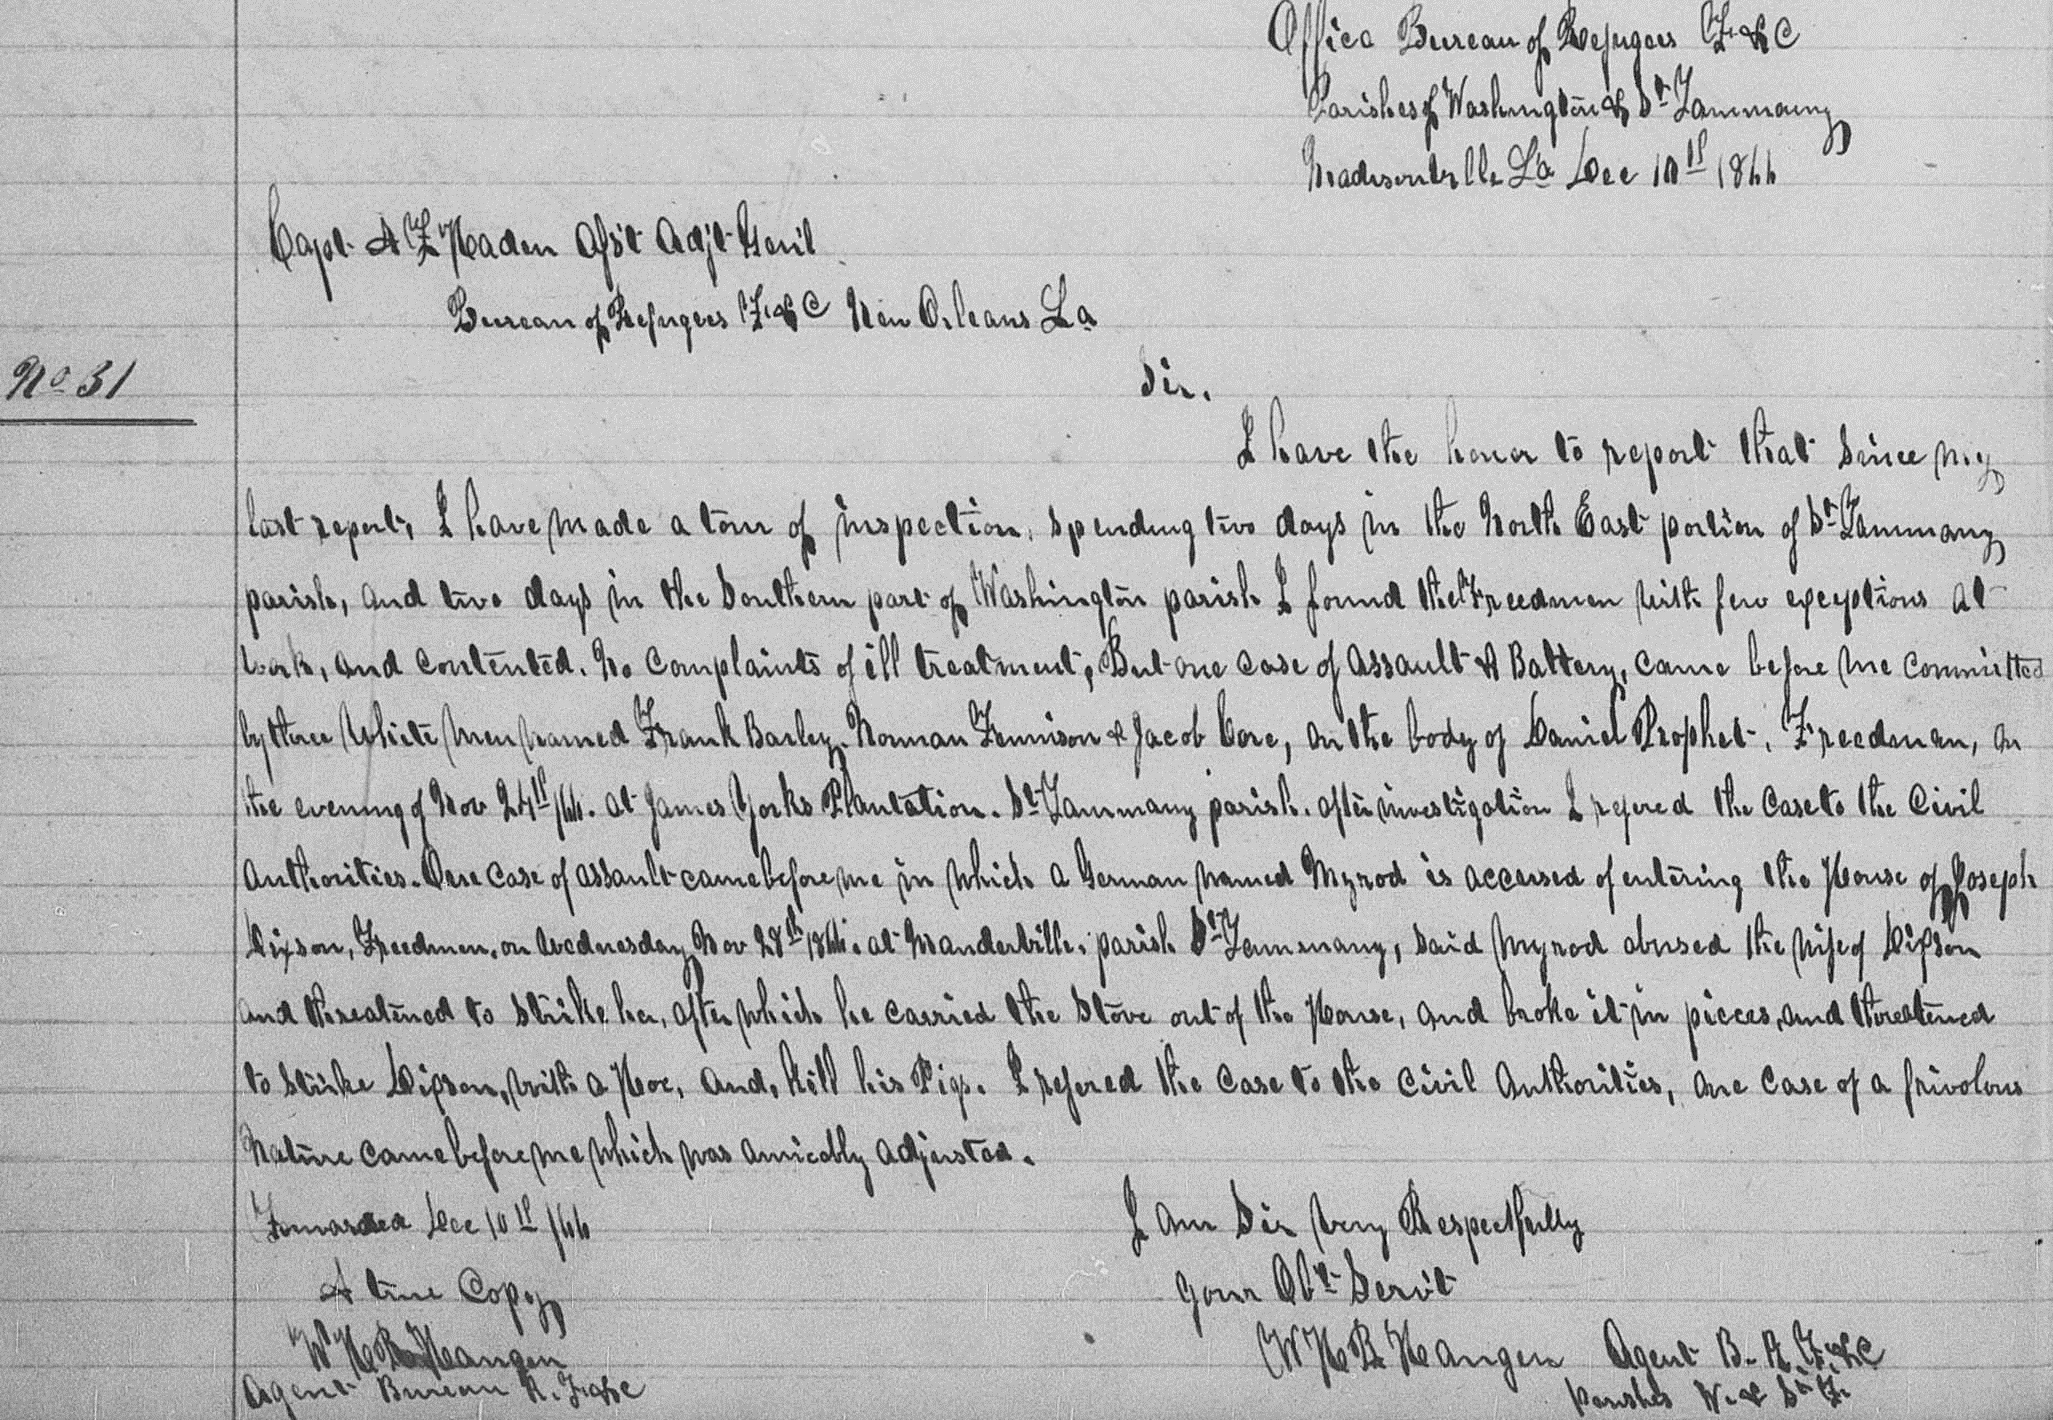 Office Bureau of Refugees F. & C
Parishes of Washington & St Tammany
Madisonville La Dec 10th 1866
Capt A F Haden Asst Adjt Genl
Bureau of Refugees F. & C New Orleans La
No 31
Sir.
I have the honor to report that since my
last report, I have made a tour of inspection, spending two days in the North East portion of St Tammany
parish, and two days in the Southern part of Washington parish I found the Freedmen with few exceptions at
work, and contented. No complaints of ill treatment, But one case of assault & Battery, came before me committed
by three White men named Frank Barley, Norman Fennison & Jacob Core, on the body of Daniel Prophet, Freedman, on
the evening of Nov 24th /66. at James Yorks Plantation. St Tammany parish. after investigation I refered the case to the Civil
Authorities. One case of assault came before me in which a German named Myrod is accused of entering the House of Joseph
Dixson, Freedmen, on Wednesday Nov 28th 1866. at Mandeville, parish St Tammany, said Myrod abused the wife of Dixson
and threatened to strike her, after which he carried the stove out of the House, and broke it in pieces, and threatened
to strike Dixson, with a Hoe, and, kill his Pigs. I refered the case to the Civil Authorities, one case of a frivolous
nature came before me which was amicably adjusted.
Forwarded Dec 10th /66
I am Sir Very Respectfully
A true Copy
Your Obt Servt
W H B Hangen
W H B Hangen Agent B. R. F. & C
Agent Bureau R. F. & C
Parishes W. & St T.